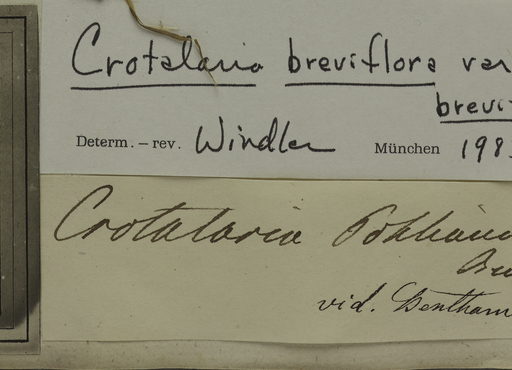 Crotalaria breviflora var
brevi
Determ. – rev. Windler München 198
Crotalaria Pohliana
vid. Bentham